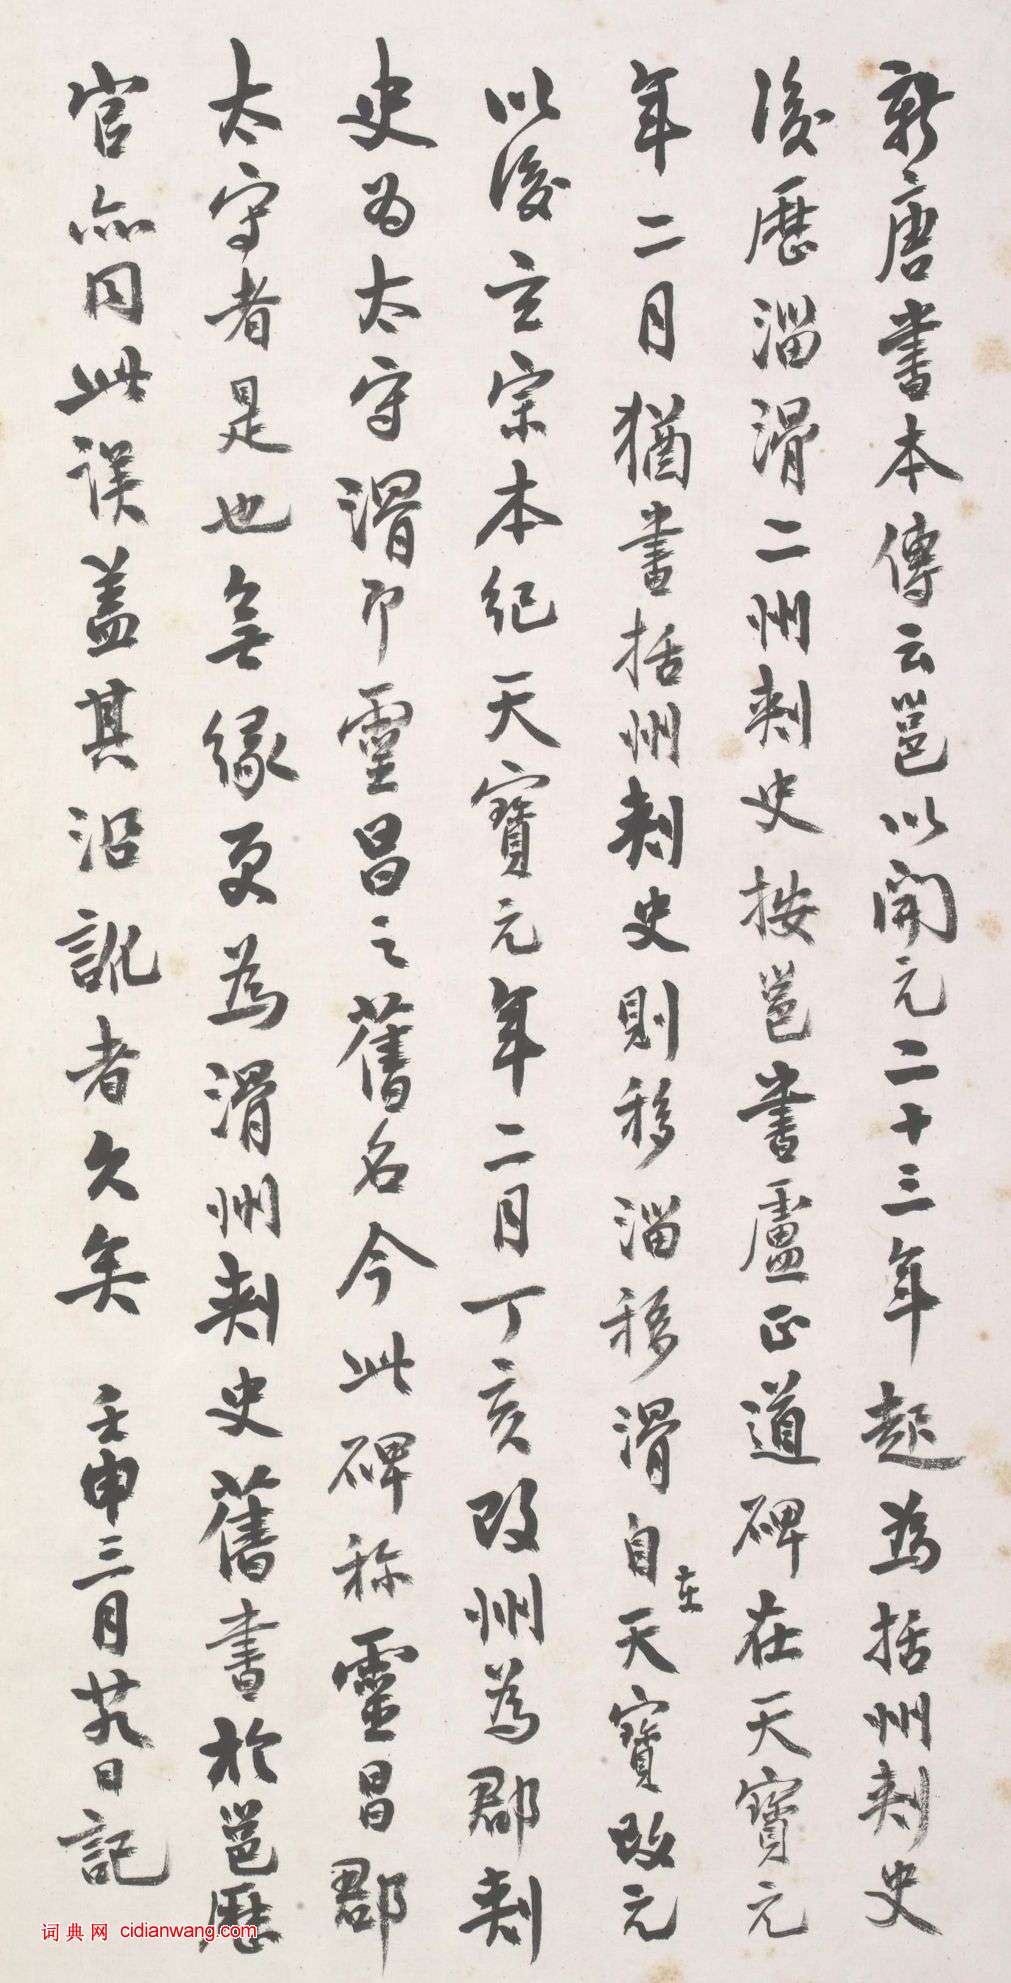 新唐書本傳云邕以開元二十三年起為括州刺史
後歷淄滑二州刺史按邕書盧正道碑在天寶元
年二月猶書括州刺史則移淄移滑自在天寶改元
以後玄宗本紀天寶元年二月丁亥改州為郡刺
史为太守滑即靈昌之舊名今此碑称靈昌郡
太守者是也無緣更為滑州刺史舊書於邕歷
官亦同此誤蓋其沿訛者久矣 壬申三月廿九日記
词典网 cidianwang.com